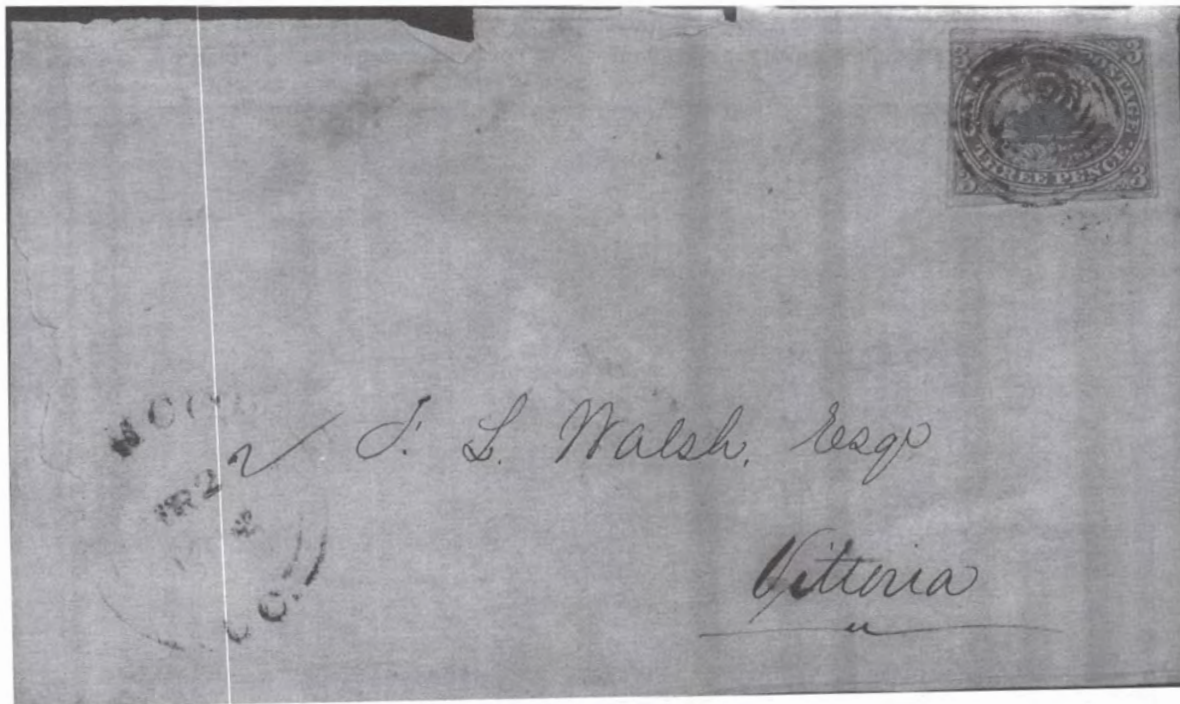 3 3
CANADA POSTAGE.
THREE PENCE.
3 3
F. L. Walsh, Esqr
Vittoria